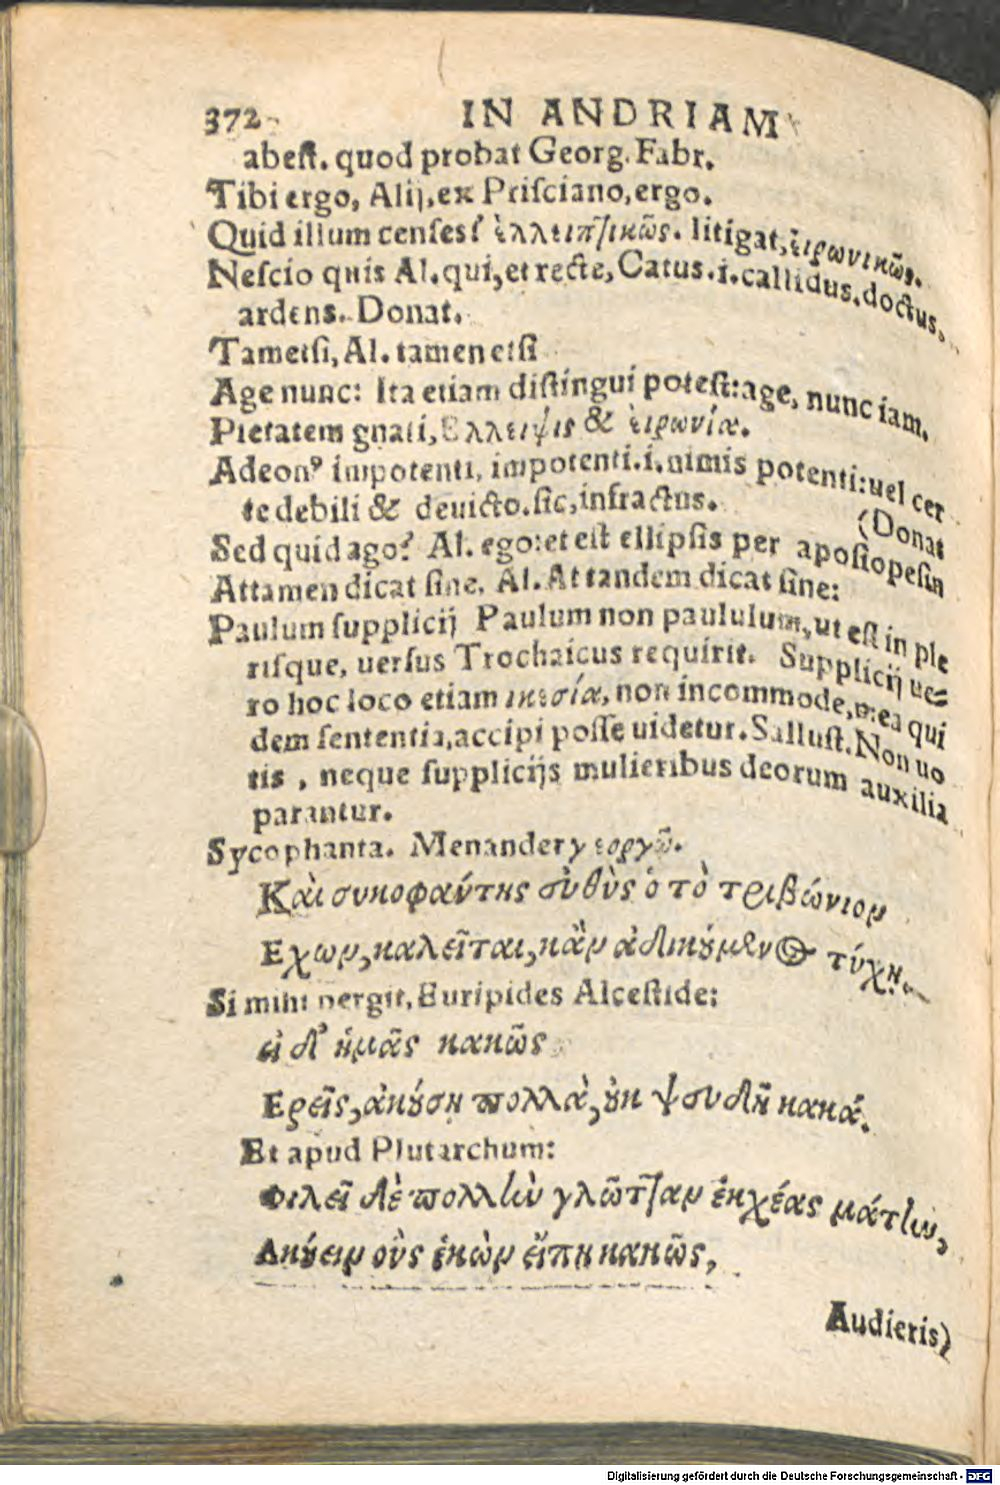 372 IN ANDRIAM
abest. quod probat Georg. Fabr.
Tibi ergo, Alij, ex Prisciano, ergo.
Quid illum censes? ἐλλειπτικῶς. litigat, εἰρωνικῶς.
Nescio quis Al. qui, et recte, Catus .i. callidus, doctus,
ardens. Donat.
Tametsi, Al. tamen etsi
Age nunc: Ita etiam distingui potest: age, nunc iam.
Pietatem gnati, Ελλειψις & εἰρωνία.
Adeonꝰ impotenti, impotenti .i. nimis potenti: uel cer
te debili & deuicto. sic, infractus. (Donat
Sed quid ago? Al. ego: et est ellipsis per aposiopesin
Attamen dicat sine, Al. At tandem dicat sine:
Paulum supplicij Paulum non paululum, ut est in ple
risque, uersus Trochaicus requirit. Supplicij ue=
ro hoc loco etiam ἱκεσία, non incommode, mea qui
dem sententia, accipi posse uidetur. Sallust. Non uo
tis, neque supplicijs mulieribus deorum auxilia
parantur.
Sycophanta. Menander γεοργῶ.
Καὶ συκοφαύτης εὐθὺς ὁ τὸ τριβώνιον
Εχων, καλεῖται, κἂν ἀδικούμενος τύχῃ.
Si mihi pergit, Euripides Alcestide:
εἰ δ᾽ ἡμᾶς κακῶς
Ερεῖς, ἀκούσῃ πολλὰ, οὐκ ψευδῆ κακά.
Et apud Plutarchum:
Φιλεῖ δὲ πολλὴν γλῶτταν ἐκχέας μάτην,
Ακούειν οὓς ἑκὼν εἴπῃ κακῶς,
Audieris)
Digitalisierung gefördert durch die Deutsche Forschungsgemeinschaft - DFG